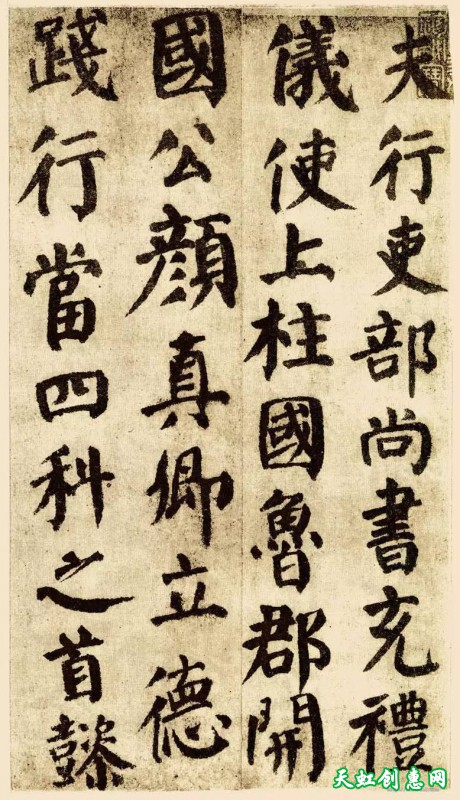 夫行吏部尚書充禮
儀使上柱國魯郡開
國公顏真卿立德
踐行當四科之首懿
天虹创惠网